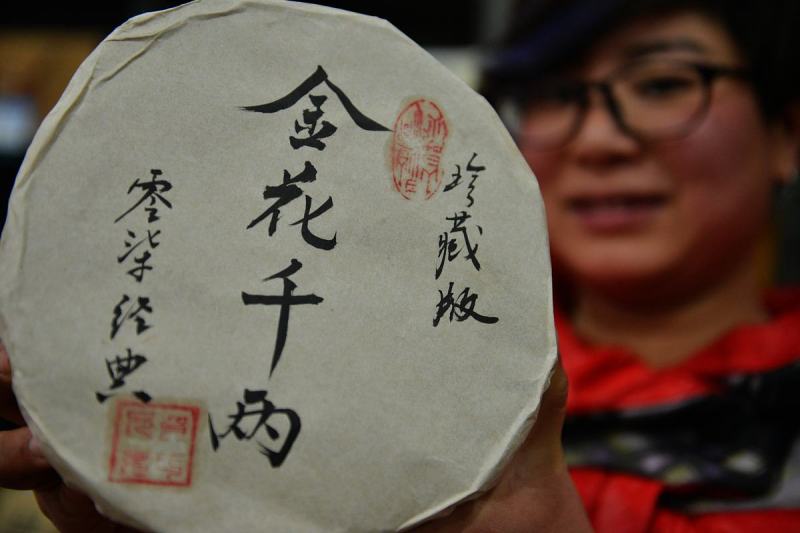 珍藏版
金花千两
零柒经典